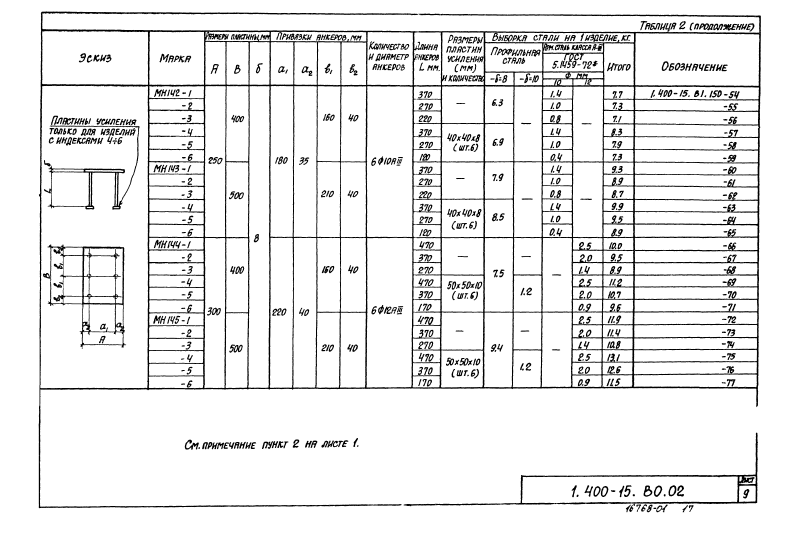 Таблица 2 (продолжение)
Эскиз Марка Размеры пластины, мм Привязки анкеров, мм Количество и диаметр анкеров Длина анкеров L мм. Размеры пластин усиления (мм) и количество Выборка стали на 1 изделие, кг. Обозначение
Профильная сталь Арм. сталь класса А-III ГОСТ 5.1459-72* Итого
А В б а₁ а₂ в₁ в₂ -δ=8 -δ=10 Ф мм 10 12
Пластины усиления
только для изделий
с индексами 4÷6
МН142-1 250 400 8 180 35 160 40 6Ф10АIII 370 — 6.3 — 1.4 — 7.7 1.400-15.В1.150-54
-2 270 1.0 7.3 -55
-3 220 0.8 7.1 -56
-4 370 40х40х8 (шт.6) 6.9 1.4 8.3 -57
-5 270 1.0 7.9 -58
-6 120 0.4 7.3 -59
МН143-1 500 210 40 370 — 7.9 — 1.4 — 9.3 -60
-2 270 1.0 8.9 -61
-3 220 0.8 8.7 -62
-4 370 40х40х8 (шт.6) 8.5 1.4 9.9 -63
-5 270 1.0 9.5 -64
-6 120 0.4 8.9 -65
МН144-1 300 400 220 40 160 40 6Ф12АIII 470 — 7.5 — — 2.5 10.0 -66
-2 370 2.0 9.5 -67
-3 270 1.4 8.9 -68
-4 470 50х50х10 (шт.6) 1.2 2.5 11.2 -69
-5 370 2.0 10.7 -70
-6 170 0.9 9.6 -71
МН145-1 500 210 40 470 — 9.4 — — 2.5 11.9 -72
-2 370 2.0 11.4 -73
-3 270 1.4 10.8 -74
-4 470 50х50х10 (шт.6) 1.2 2.5 13.1 -75
-5 370 2.0 12.6 -76
-6 170 0.9 11.5 -77
См. примечание пункт 2 на листе 1.
1.400-15.В0.02
Лист
9
16768-01 17